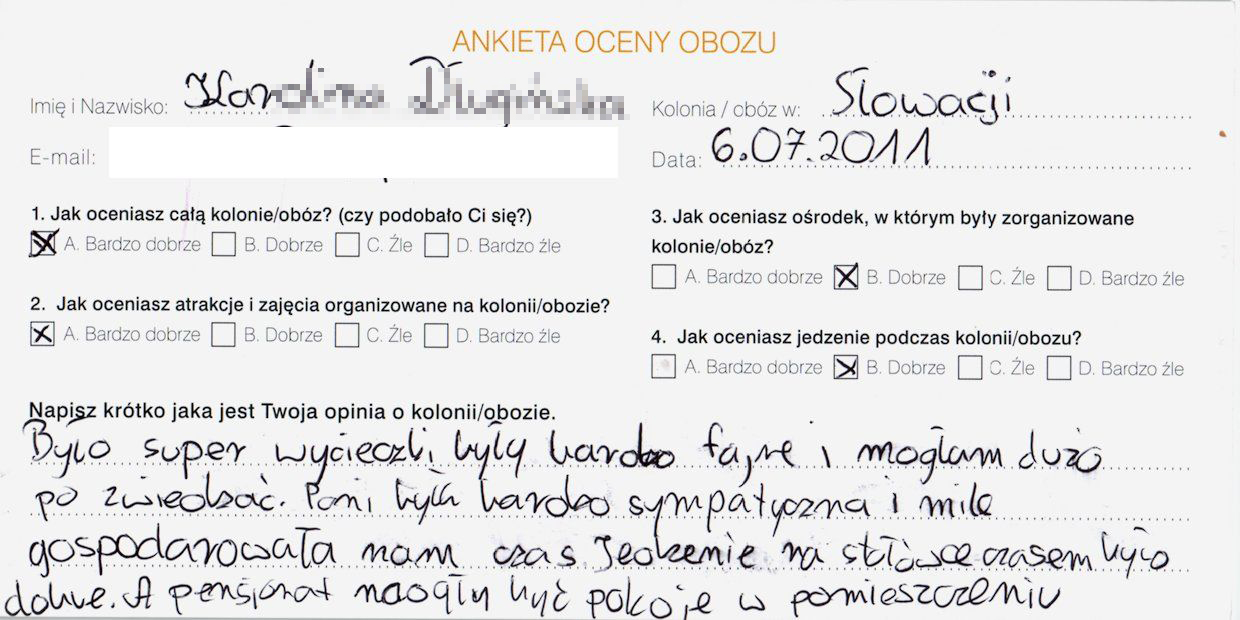 ANKIETA OCENY OBOZU
Imię i Nazwisko: Karolina
Kolonia / obóz w: Slowacji
E-mail:
Data: 6.07.2011
1. Jak oceniasz całą kolonie/obóz? (czy podobało Ci się?)
A. Bardzo dobrze B. Dobrze C. Źle D. Bardzo źle
2. Jak oceniasz atrakcje i zajęcia organizowane na kolonii/obozie?
A. Bardzo dobrze B. Dobrze C. Źle D. Bardzo źle
3. Jak oceniasz ośrodek, w którym były zorganizowane
kolonie/obóz?
A. Bardzo dobrze B. Dobrze C. Źle D. Bardzo źle
4. Jak oceniasz jedzenie podczas kolonii/obozu?
A. Bardzo dobrze B. Dobrze C. Źle D. Bardzo źle
Napisz krótko jaka jest Twoja opinia o kolonii/obozie.
Było super wycieczki były bardzo fajne i mogłam dużo
po zwiedzać. Pani była bardzo sympatyczna i mile
gospodarowała nam czas Jedzenie na stłówce czasem było
dobre. A pensjonat być pokoje w pomieszczeniu